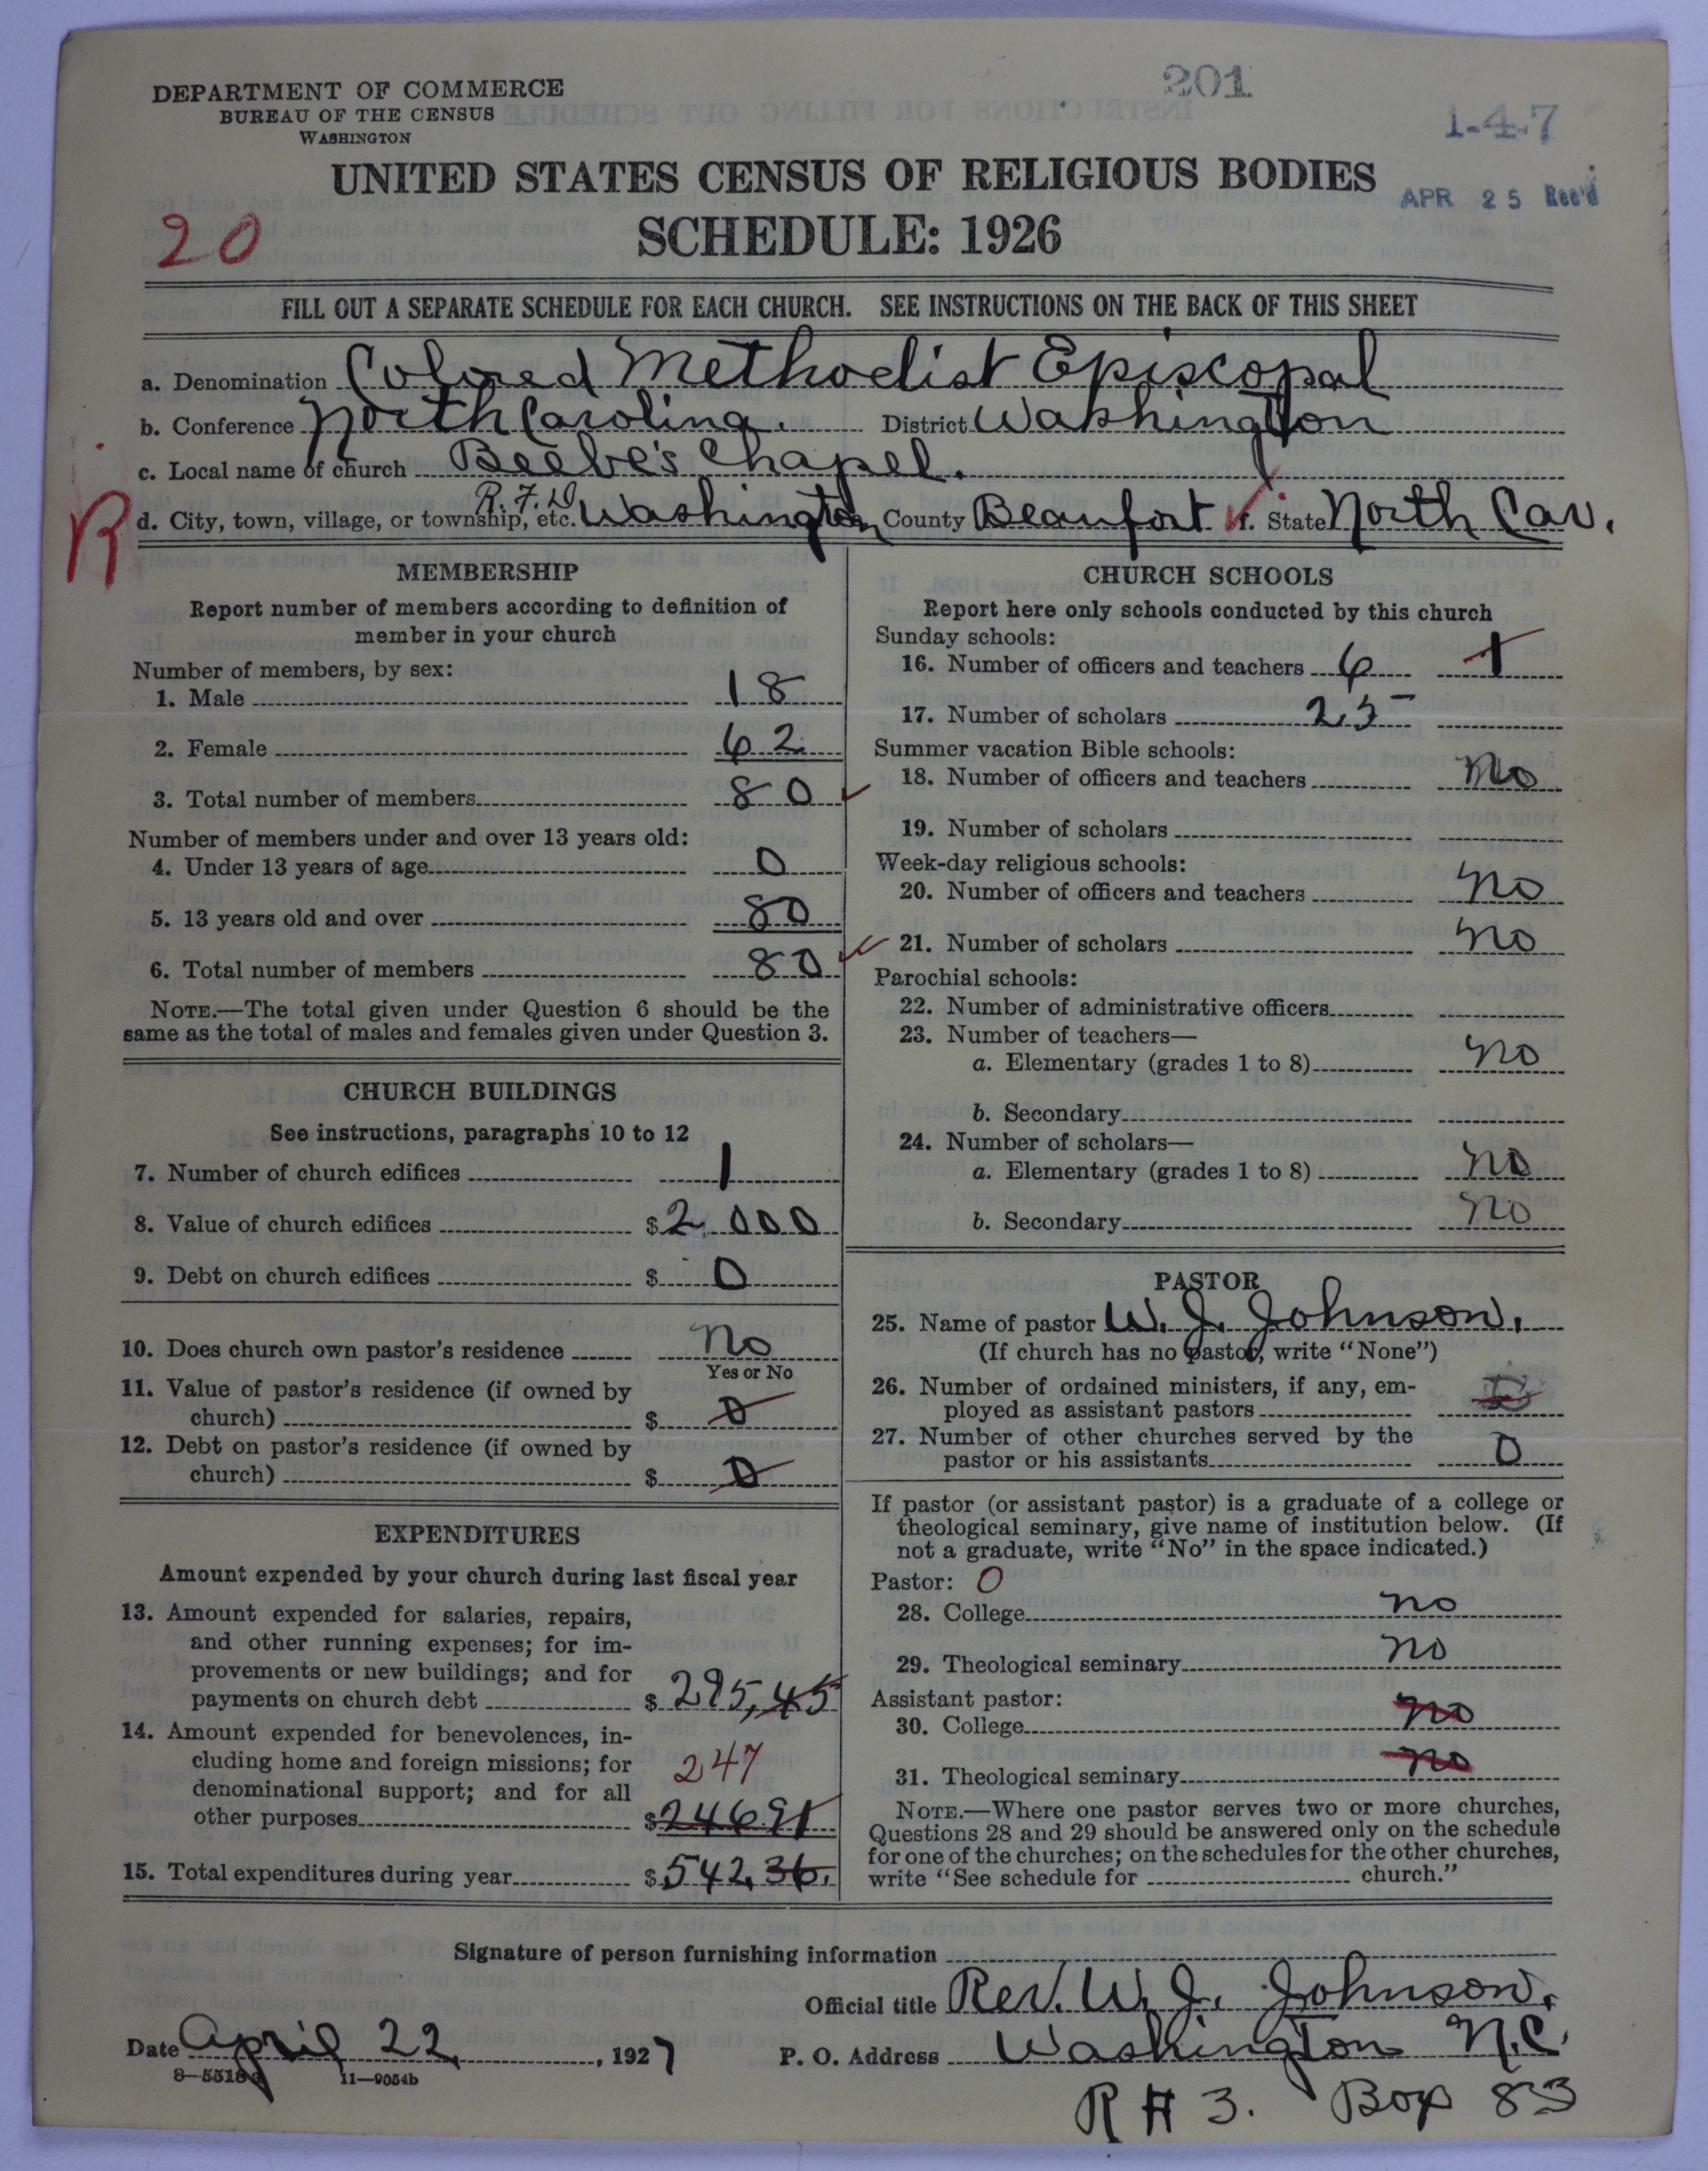 201
1-4-7
DEPARTMENT OF COMMERCE
BUREAU OF THE CENSUS
WASHINGTON
UNITED STATES CENSUS OF RELIGIOUS BODIES
APR 25 Rec'd
20
SCHEDULE: 1926
FILL OUT A SEPARATE SCHEDULE FOR EACH CHURCH. SEE INSTRUCTIONS ON THE BACK OF THIS SHEET
a. Denomination Colored Methodist Episcopal
b. Conference North Carolina. District Washington
c. Local name of church Beebe's Chapel.
R.F.D
R d. City, town, village, or township, etc. Washington County Beaufort f. State North Car.
MEMBERSHIP
Report number of members according to definition of
member in your church
Number of members, by sex:
1. Male 18
2. Female 62
3. Total number of members 80
Number of members under and over 13 years old:
4. Under 13 years of age 0
5. 13 years old and over 80
6. Total number of members 80
NOTE.—The total given under Question 6 should be the
same as the total of males and females given under Question 3.
CHURCH BUILDINGS
See instructions, paragraphs 10 to 12
7. Number of church edifices 1
8. Value of church edifices $2,000
9. Debt on church edifices $ 0
10. Does church own pastor's residence No
Yes or No
11. Value of pastor's residence (if owned by
church) $ 0
12. Debt on pastor's residence (if owned by
church) $ 0
EXPENDITURES
Amount expended by your church during last fiscal year
13. Amount expended for salaries, repairs,
and other running expenses; for im-
provements or new buildings; and for
payments on church debt $ 295,45
14. Amount expended for benevolences, in-
cluding home and foreign missions; for 247
denominational support; and for all
other purposes $246.91
15. Total expenditures during year $542.36.
CHURCH SCHOOLS
Report here only schools conducted by this church
Sunday schools:
16. Number of officers and teachers 6 1
17. Number of scholars 25
Summer vacation Bible schools:
18. Number of officers and teachers No
19. Number of scholars
Week-day religious schools:
20. Number of officers and teachers No
21. Number of scholars No
Parochial schools:
22. Number of administrative officers
23. Number of teachers—
a. Elementary (grades 1 to 8) No
b. Secondary
24. Number of scholars—
a. Elementary (grades 1 to 8) No
b. Secondary No
PASTOR
25. Name of pastor W. J. Johnson.
(If church has no pastor, write "None")
26. Number of ordained ministers, if any, em-
ployed as assistant pastors
27. Number of other churches served by the
pastor or his assistants 0
If pastor (or assistant pastor) is a graduate of a college or
theological seminary, give name of institution below. (If
not a graduate, write "No" in the space indicated.)
Pastor: 0
28. College no
29. Theological seminary no
Assistant pastor:
30. College no
31. Theological seminary no
NOTE.—Where one pastor serves two or more churches,
Questions 28 and 29 should be answered only on the schedule
for one of the churches; on the schedules for the other churches,
write "See schedule for church."
Signature of person furnishing information
Official title Rev. W. J. Johnson.
Date April 22, 1927 P. O. Address Washington N.C.
8-5518a 11-9054b
R # 3. Box 83